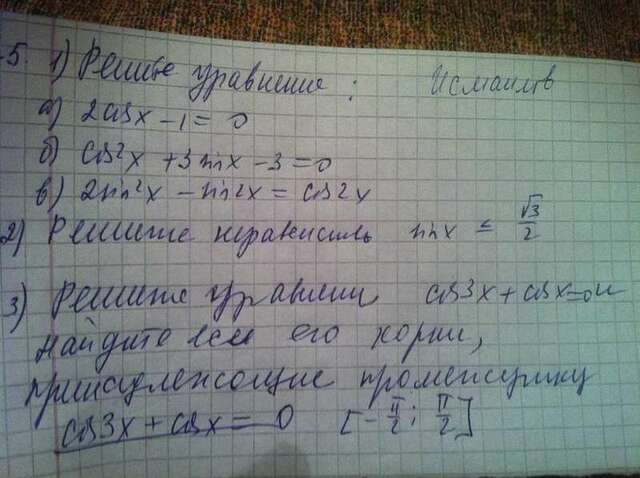 5. 1) Решите уравнение: Исмаилов
а) 2cosx - 1 = 0
б) cos²x + 3sinx - 3 = 0
в) 2sin²x - sin2x = cos2x
2) Решите неравенство sinx ≤ √3/2
3) Решите уравнение cos3x + cosx = 0 и
найдите все его корни,
принадлежащие промежутку
cos3x + cosx = 0 [-π/2; π/2]